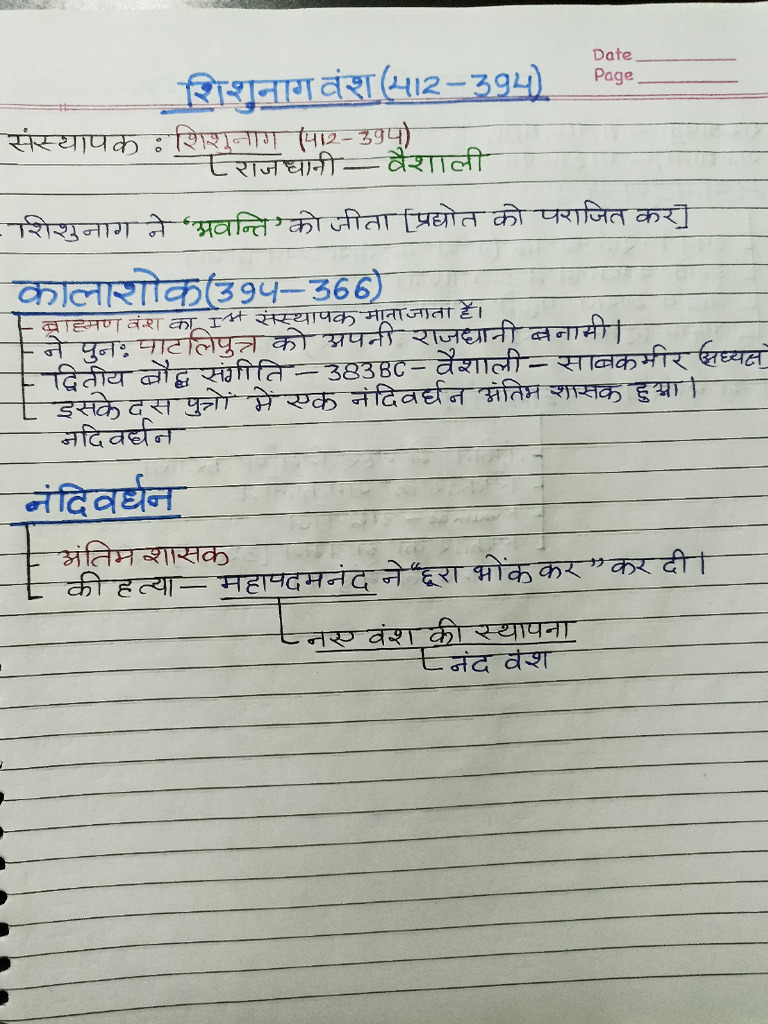 Date
Page
शिशुनाग वंश (412-394)
संस्थापक : शिशुनाग (412-394)
राजधानी — वैशाली
शिशुनाग ने 'अवन्ति' को जीता [प्रद्योत को पराजित कर]
कालाशोक (394-366)
- ब्राह्मण वंश का Ist संस्थापक माना जाता है।
- ने पुनः पाटलिपुत्र को अपनी राजधानी बनायी।
- द्वितीय बौद्ध संगीति - 383BC - वैशाली - साबकमीर (अध्यक्ष)
इसके दस पुत्रों में एक नंदिवर्धन अंतिम शासक हुआ।
नदिवर्धन
नंदिवर्धन
- अंतिम शासक
की हत्या - महापदमनंद ने "छूरा भोंक कर" कर दी।
नए वंश की स्थापना
नंद वंश